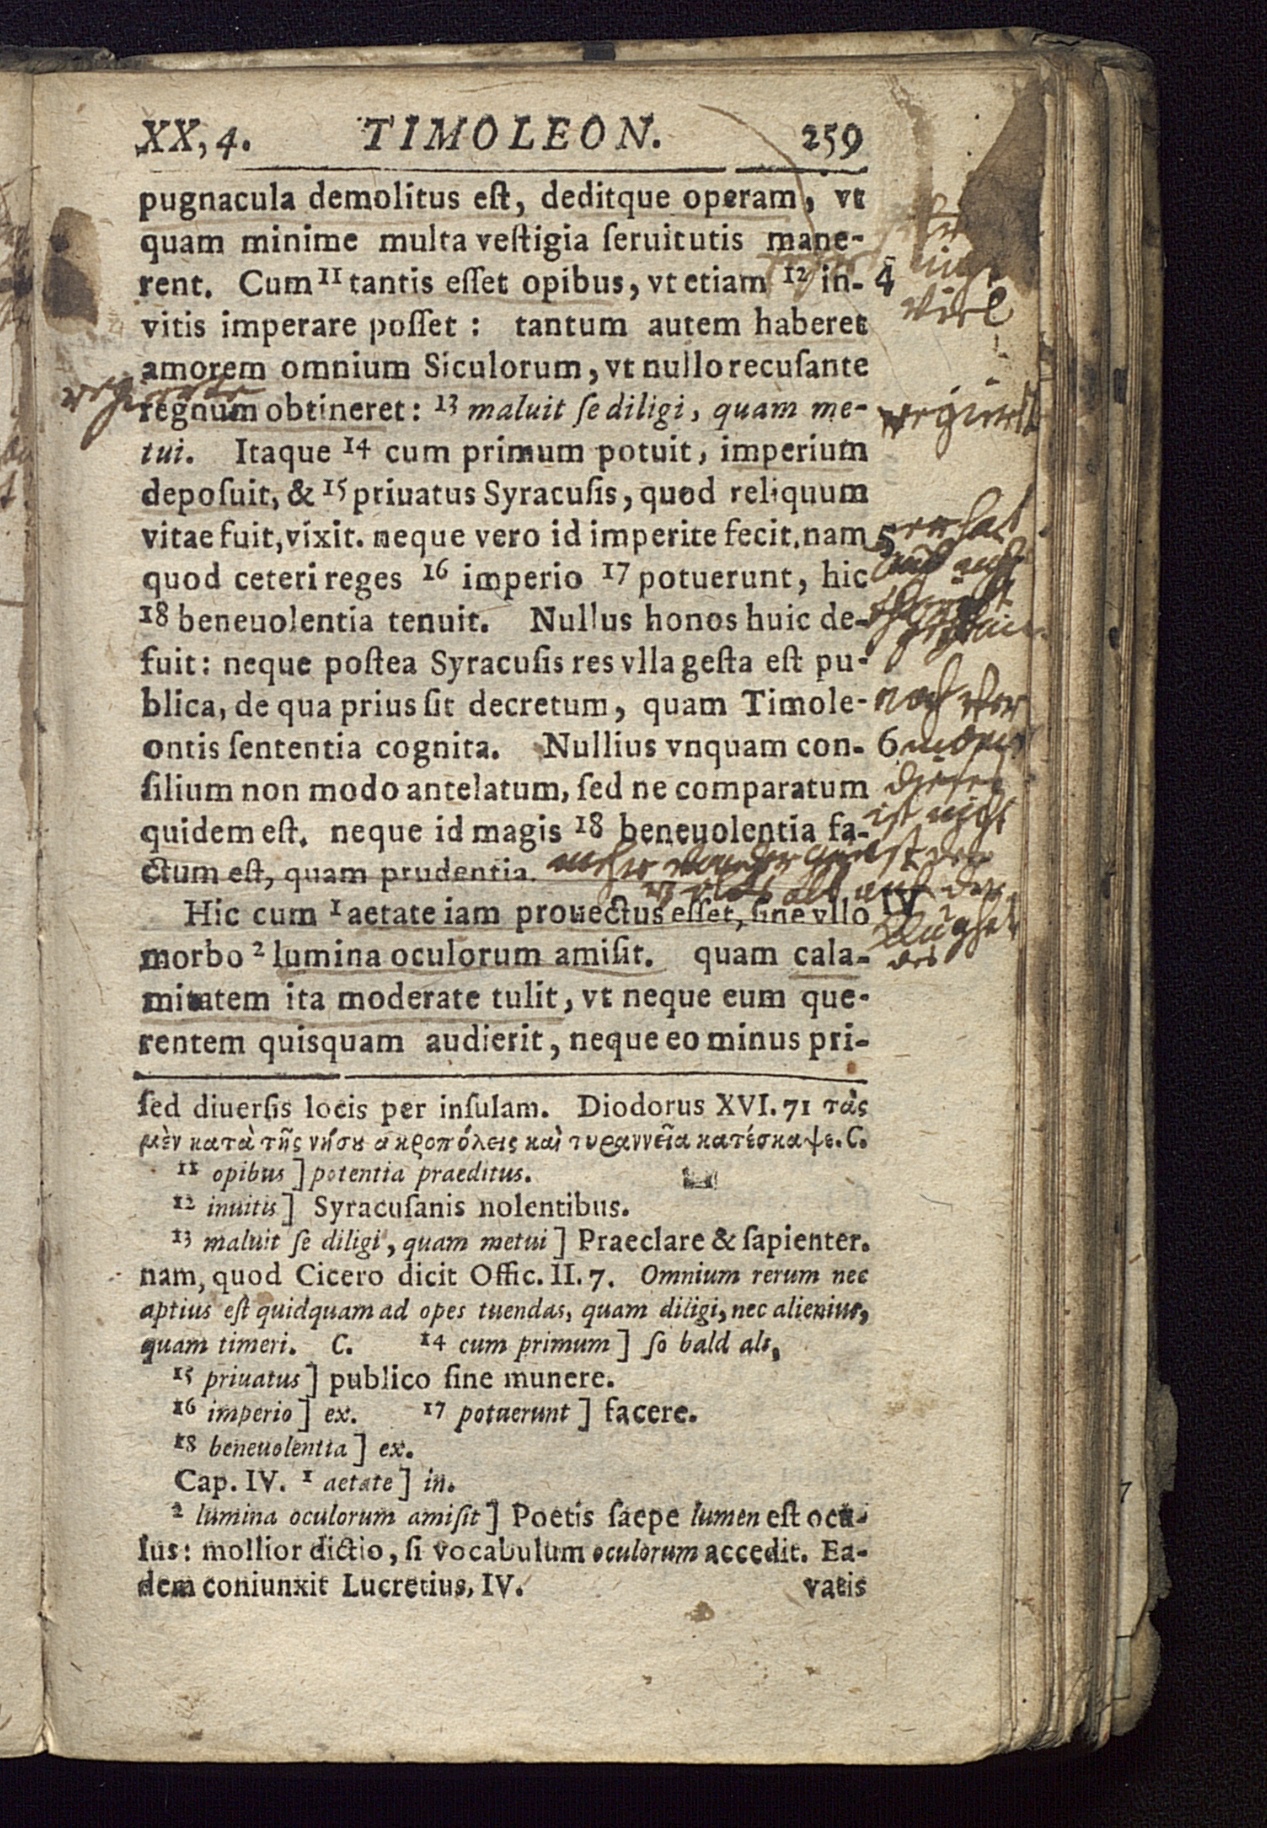 XX, 4. TIMOLEON. 259
pugnacula demolitus eſt, deditque operam, vt
quam minime multa veſtigia ſeruitutis mane-
rent. Cum 11 tantis eſſet opibus, vt etiam 12 in- 4
vitis imperare poſſet : tantum autem haberet
amorem omnium Siculorum, vt nullo recuſante
regnum obtineret: 13 maluit ſe diligi, quam me-
tui. Itaque 14 cum primum potuit, imperium
depoſuit, & 15 priuatus Syracuſis, quod reliquum
vitae fuit, vixit. neque vero id imperite fecit. nam 5
quod ceteri reges 16 imperio 17 potuerunt, hic
18 beneuolentia tenuit. Nullus honos huic de-
fuit: neque poſtea Syracuſis res vlla geſta eſt pu-
blica, de qua prius ſit decretum, quam Timole-
ontis ſententia cognita. Nullius vnquam con- 6
ſilium non modo antelatum, ſed ne comparatum
quidem eſt. neque id magis 18 beneuolentia fa-
ctum eſt, quam prudentia.
Hic cum 1 aetate iam prouectus eſſet, ſine vllo IV
morbo 2 lumina oculorum amiſit. quam cala-
mitatem ita moderate tulit, vt neque eum que-
rentem quisquam audierit, neque eo minus pri-
viel
regierte
er hat
nicht
ist nicht
mehr von der gunst des
volks als auf der
ſed diuerſis locis per inſulam. Diodorus XVI. 71 τὰς
μὲν κατὰ τῆς νήσȣ ἀκροπόλεις καὶ τυραννεῖα κατέσκαψε. C.
11 opibus ] potentia praeditus.
12 inuitis ] Syracuſanis nolentibus.
13 maluit ſe diligi, quam metui ] Praeclare & ſapienter.
nam, quod Cicero dicit Offic. II. 7. Omnium rerum nec
aptius eſt quidquam ad opes tuendas, quam diligi, nec alienius,
quam timeri. C. 14 cum primum ] ſo bald als,
15 priuatus ] publico ſine munere.
16 imperio ] ex. 17 potuerunt ] facere.
18 beneuolentia ] ex.
Cap. IV. 1 aetate ] in.
2 lumina oculorum amiſit ] Poetis ſaepe lumen eſt ocu-
lus: mollior dictio, ſi vocabulum oculorum accedit. Ea-
dem coniunxit Lucretius, IV. vatis